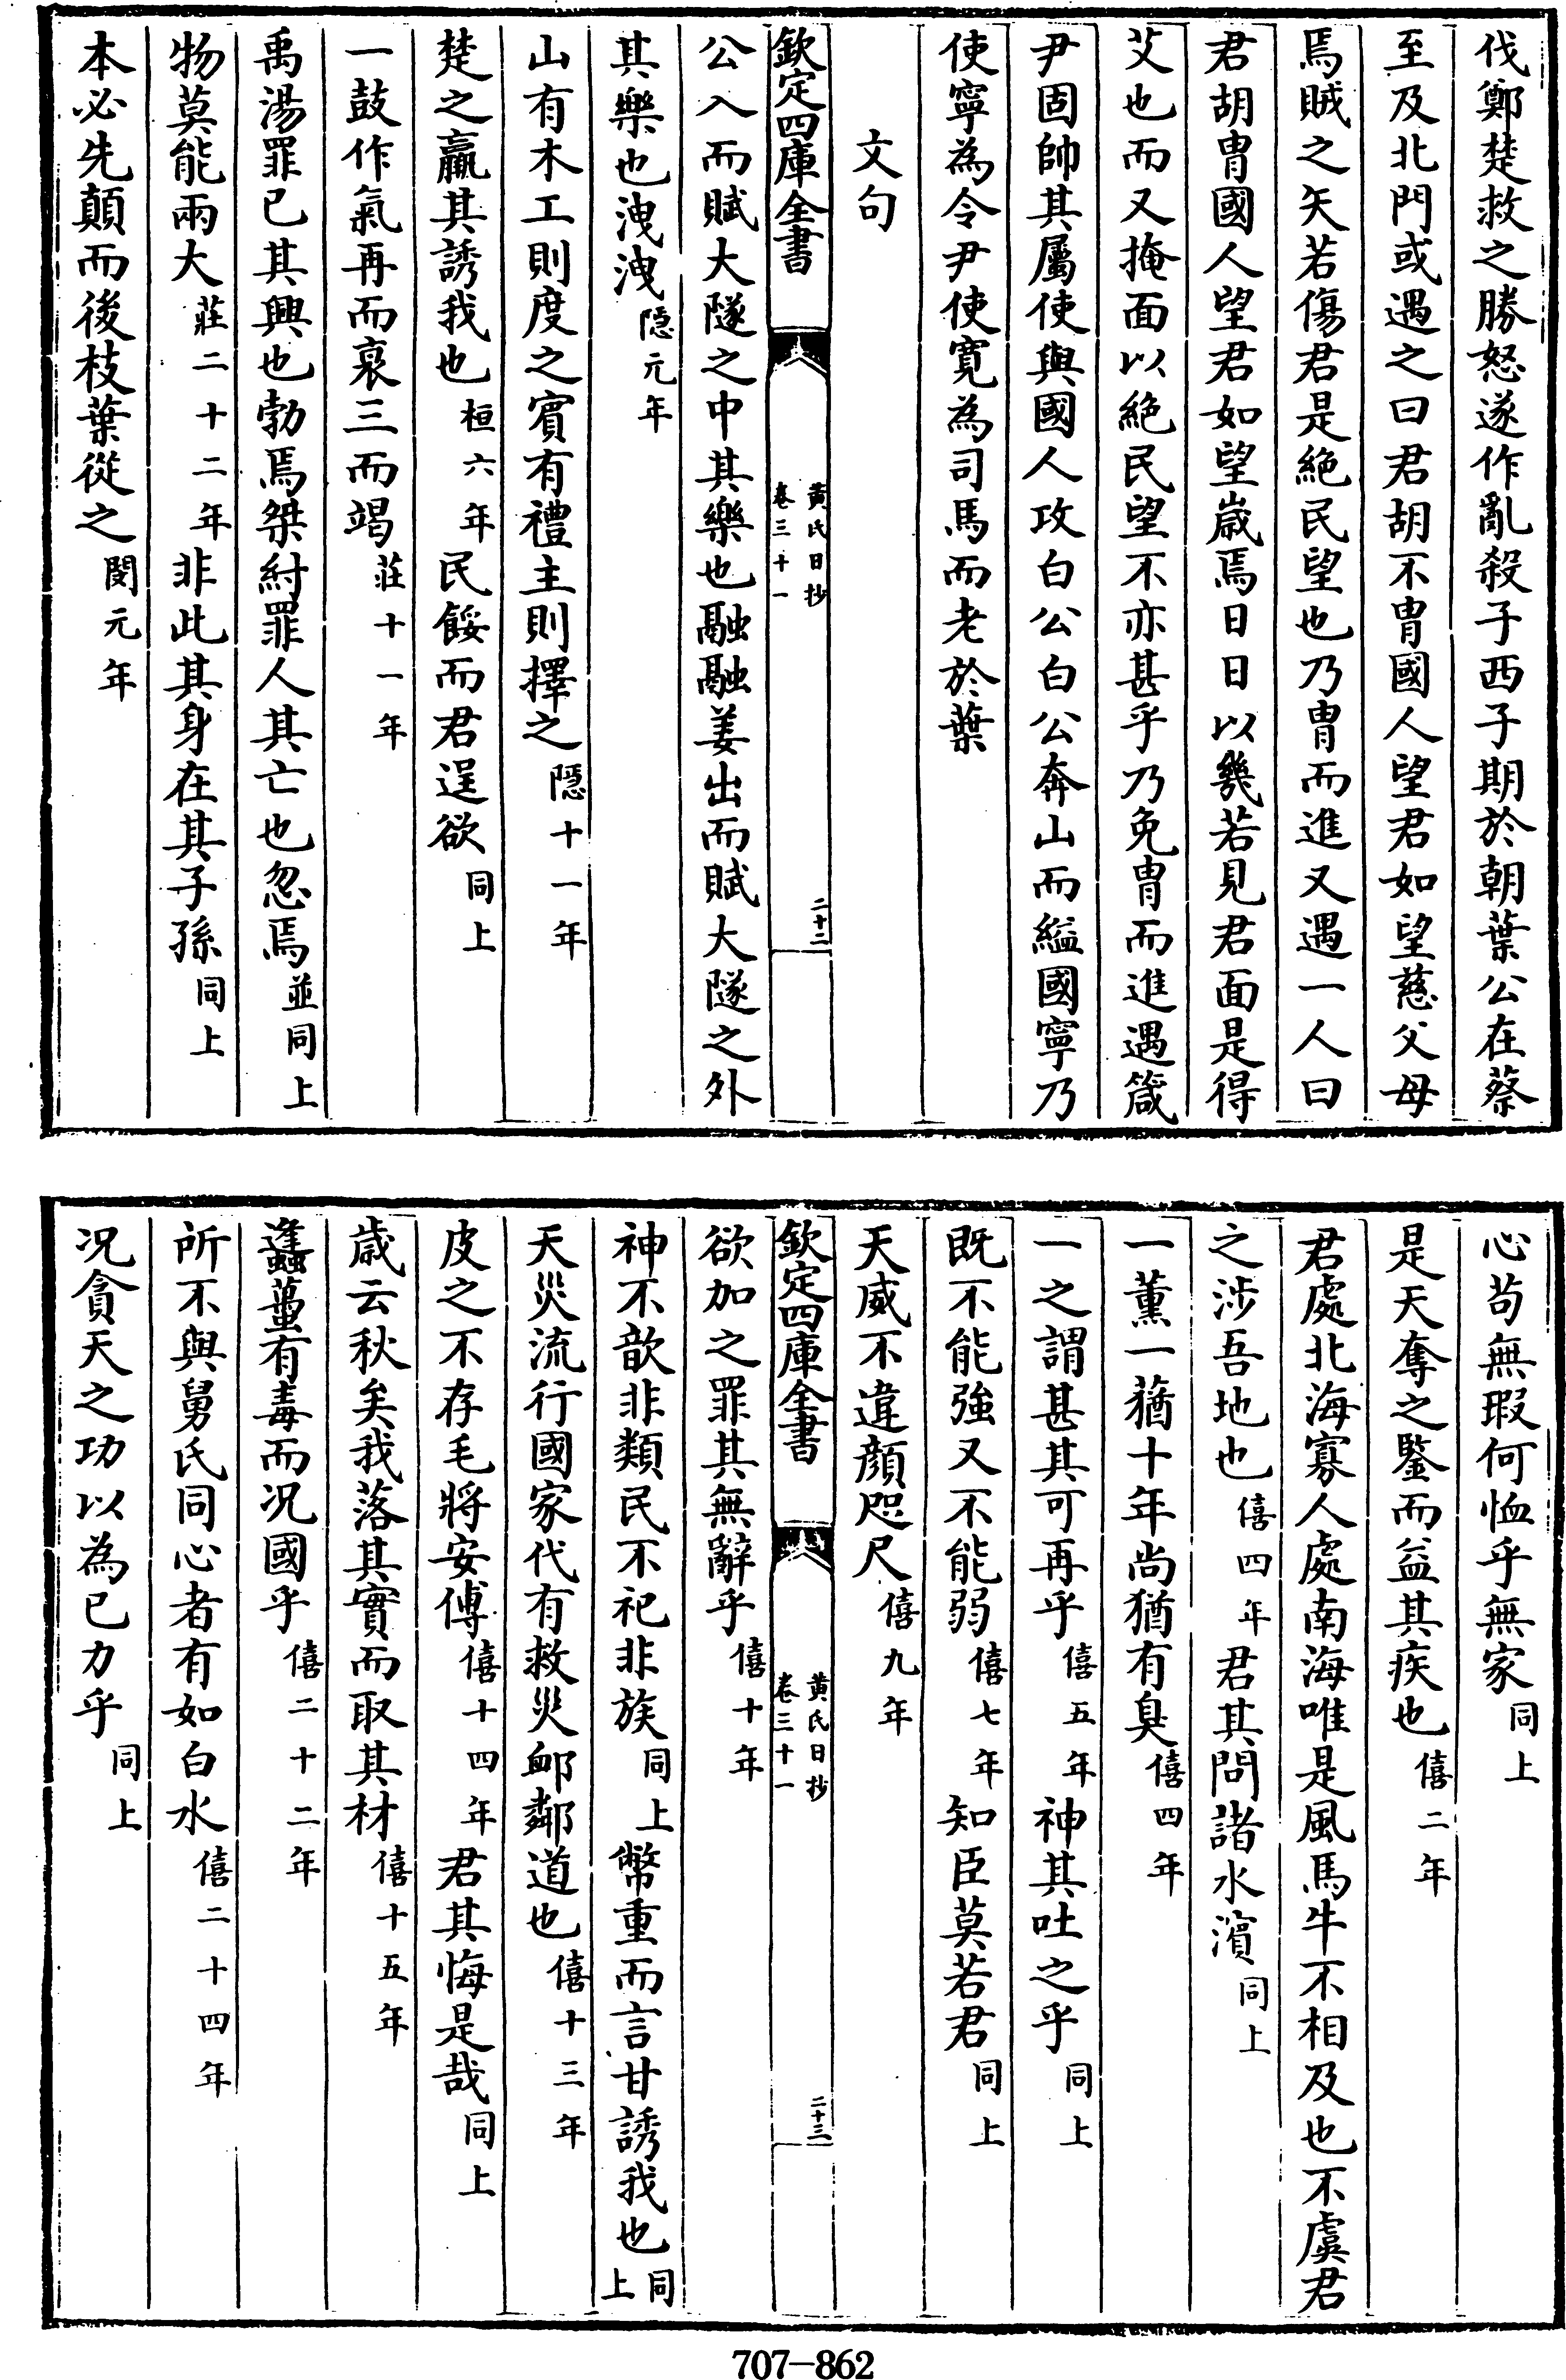 伐鄭楚救之勝怒遂作亂殺子西子期於朝葉公在蔡
至及北門或遇之曰君胡不胄國人望君如望慈父母
焉賊之矢若傷君是絶民望也乃胄而進又遇一人曰
君胡胄國人望君如望歲焉日日以幾若見君面是得
艾也而又掩面以絶民望不亦甚乎乃免胄而進遇箴
尹固帥其屬使與國人攻白公白公奔山而縊國寧乃
使寧為令尹使寛為司馬而老於葉
文句
欽定四庫全書
黄氏日抄
卷三十一
二十二
公入而賦大隧之中其樂也融融姜出而賦大隧之外
其樂也洩洩隠元年
山有木工則度之賓有禮主則擇之隱十一年
楚之羸其誘我也桓六年民餒而君逞欲同上
一鼓作氣再而衰三而竭莊十一年
禹湯罪已其興也勃焉桀紂罪人其亡也忽焉並同上
物莫能兩大莊二十二年非此其身在其子孫同上
本必先顛而後枝葉從之閔元年
心苟無瑕何恤乎無家同上
是天奪之鑒而益其疾也僖二年
君處北海寡人處南海唯是風馬牛不相及也不虞君
之涉吾地也僖四年君其問諸水濵同上
一薰一蕕十年尚猶有臭僖四年
一之謂甚其可再乎僖五年神其吐之乎同上
既不能強又不能弱僖七年知臣莫若君同上
天威不違顔咫尺僖九年
欽定四庫全書
黄氏日抄
卷三十一
二十三
欲加之罪其無辭乎僖十年
神不歆非類民不祀非族同上幣重而言甘誘我也同上
天災流行國家代有救災䘏鄰道也僖十三年
皮之不存毛將安傅僖十四年君其悔是哉同上
歲云秋矣我落其實而取其材僖十五年
蠭蠆有毒而况國乎僖二十二年
所不與舅氏同心者有如白水僖二十四年
况貪天之功以為已力乎同上
707-862